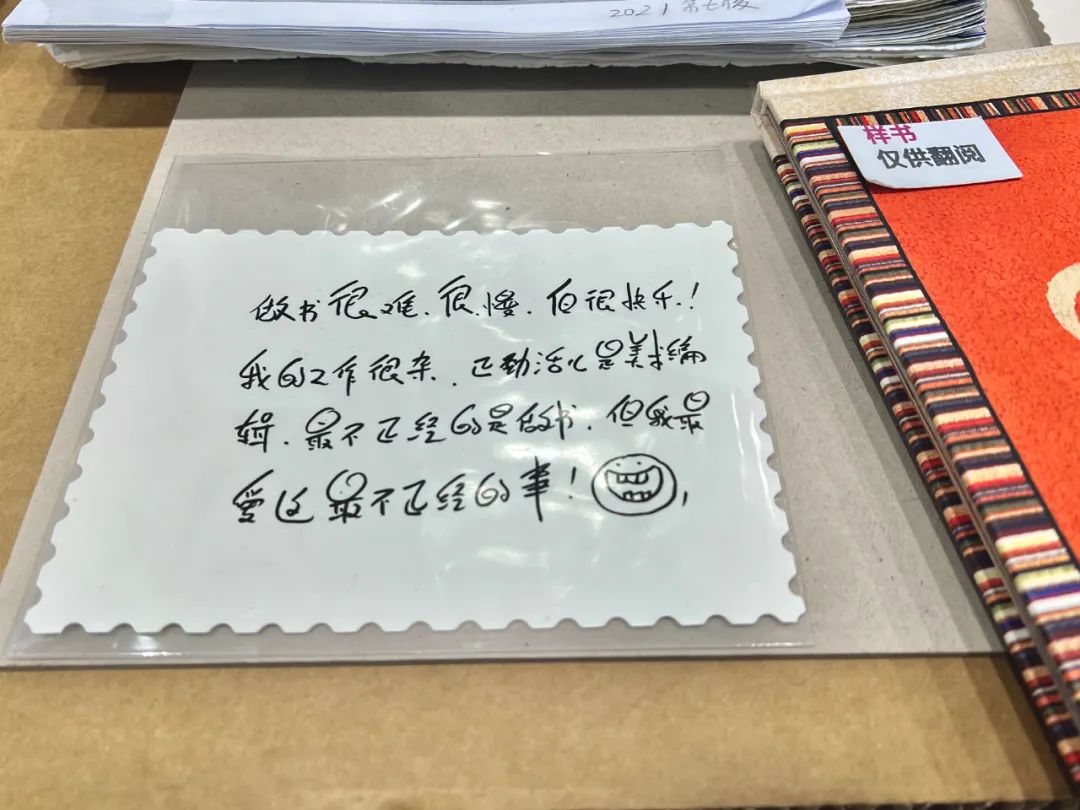 2021 第七版
样书
仅供翻阅
做书很难.很慢.但很快乐!
我的工作很杂.正劲活儿是美术编
辑.最不正经的是做书.但我最
爱这最不正经的事!